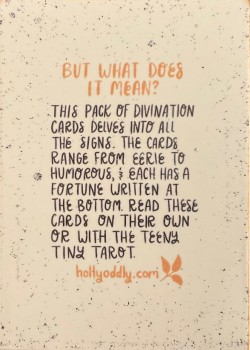 BUT WHAT DOES
IT MEAN?
THIS PACK OF DIVINATION
CARDS DELVES INTO ALL
THE SIGNS. THE CARDS
RANGE FROM EERIE TO
HUMOROUS, & EACH HAS A
FORTUNE WRITTEN AT
THE BOTTOM. READ THESE
CARDS ON THEIR OWN
OR WITH THE TEENY
TINY TAROT.
hollyoddly.com